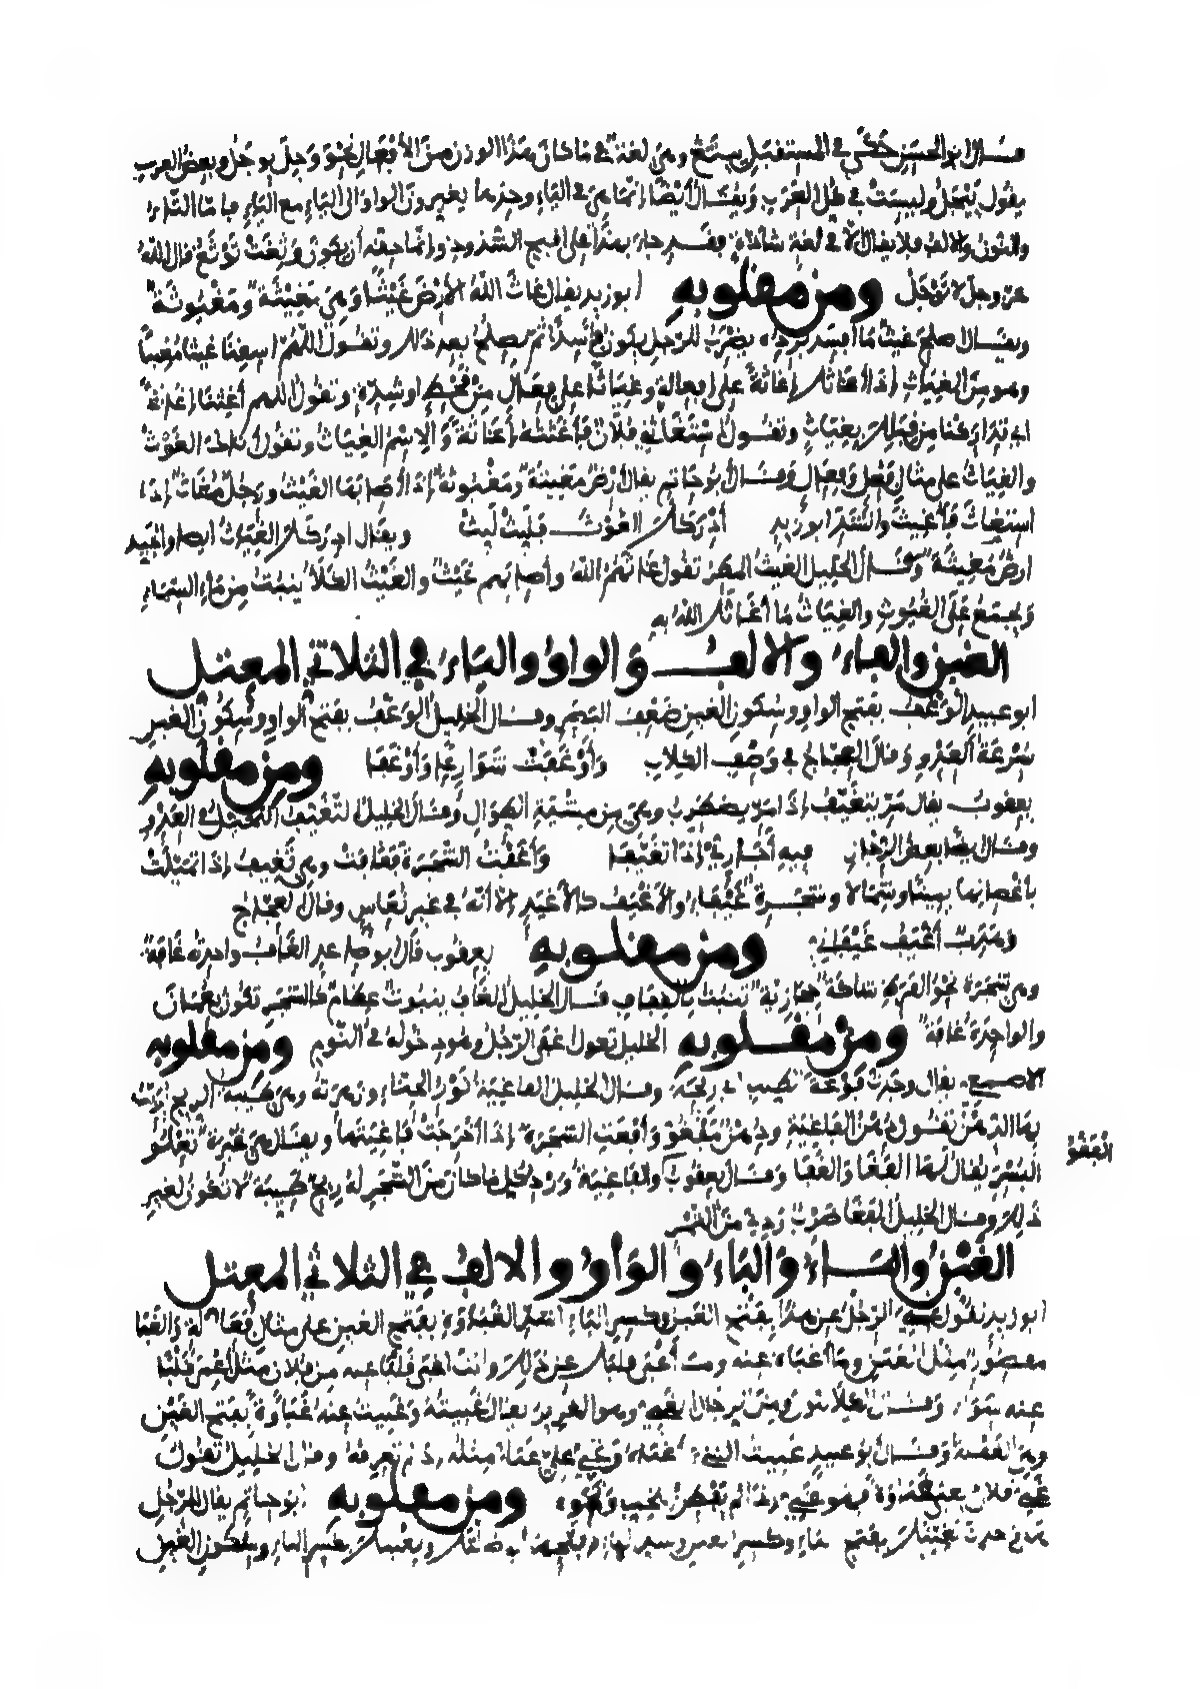 قال ابو الحسن حكي في المستقبل ييتغ وهي لغة في ما كان هذا الوزن من الأفعال نحو وجل يوجل وبعض العرب
يقول ييجل وليست في كل العرب ويقال أيضا إنما هي في الياء وحدها يغيرون الواو الى الياء مع الياء فاما التاء
والنون والالف فلا يقال الا في لغة شاذة وقد جاء هذا على اقبح الشذوذ وانما حقه أن يكون وتغت توتغ قال الله
عز وجل لا توجل ومن مقلوبه ابو زيد يقال غاث الله الأرض غيثا وهي مغيثة ومغيوثة
ويقال اصلح غيث ما افسد برده يضرب للرجل يكون فاسدا ثم يصلح بعد ذلك وتقول اللهم اسقنا غيثا مغيثا
وهو من الغياث إذا أغاثك إغاثة على إفعالة وغياثا على فعال من قحط او شدة وتقول اللهم أغثنا إغاثة
اي تداركنا من قبلك بغياث وتقول استغاثني فلان فأغثته إغاثة والاسم الغياث وتقول
والغياث على مثال فعل وفعال وقال أبو حاتم يقال أرض مغيثة ومغيوثة إذا أصابها الغيث ورجل مغاث إذا
استغاث فأغيث وانشد ابو زيد أدركك الغوث فليث ليث ويقال ادركك الغياث ايضا
ارض مغيثة وقال الخليل الغيث المطر تقول غاثهم الله وأصابهم غيث والغيث الكلأ ينبت من ماء السماء
ويجمع على الغيوث والغياث ما أغاثك الله به
الغين والفاء والالف والواو والياء في الثلاثي المعتل
ابو عبيد الوغف بفتح الواو وسكون الغين ضعف البصر وقال الخليل الوغف بفتح الواو وسكون الغين
سرعة العدو وقال العجاج في وصف الكلاب وأوغفت شوارعا وأوغفا ومن مقلوبه
يعقوب يقال مر يتغيف إذا مر يضطرب وهي من مشية الطوال وقال الخليل التغيف التميل في العدو
وقال بعض الرجاز فيه أخاري إذا تغيفا وأغفت الشجرة فغافت وهي تغيف إذا تميلت
بأغصانها يمينا وشمالا وشجرة غيفاء والأغيف كالأغيد إلا أنه في غير نعاس وقال العجاج
وهدب أغيف غيفاني ومن مقلوبه يعقوب قال ابو صاعد الغاف واحدته غافة
وهي شجرة نحو القرظ شاكة حجازية تنبت بالقفاف قال الخليل الغاف ينبوت عظام كالشجر تكون بعمان
والواحدة غافة ومن مقلوبه الخليل تقول غفى الرجل وهو دخوله في النوم ومن مقلوبه
الاصمعي يقال وجدت فوغة الطيب اي ريحه وقال الخليل الفاغية نور الحناء وزهرته وهي طيبة الريح
بها الدهن تقول دهن الفاغية ودهن مفغو وأفغت الشجرة إذا أخرجت فاغيتها ويقال هي ثمرة تعلو
البسر يقال لها الفغا والغفا وقال يعقوب والفاغية وردكل ما كان من الشجر له ريح طيبة لا تكون لغير
ذلك وقال الخليل الفغا ضرب ردي من التمر
الغين والباء والياء والواو والالف في الثلاثي المعتل
ابو زيد تقول غبي الرجل عن هذا بفتح الغين وكسر الباء اشد الغباوة بفتح الغين على مثال فعالة والغبا
مقصور مثل العمى وما أغباه عنه وما أغبى قلبك عن ذلك وانت اغبى قلبا عنه من فلان مثل أعمى قلبا
عنه سواء وقال الكلابيون ومن الرجال الغبي وهو الغرير يقال غبيته وغبيت عنه غباوة بفتح الغين
وهي الغفلة وقال أبو عبيد غبيت الشيء أغباه وغبي علي غباء مثله إذا لم تعرفه وقال الخليل تقول
غبي فلان يغبى غباوة فهو غبي إذا لم يفطن ومن مقلوبه ابو حاتم يقال للرجل
العفو